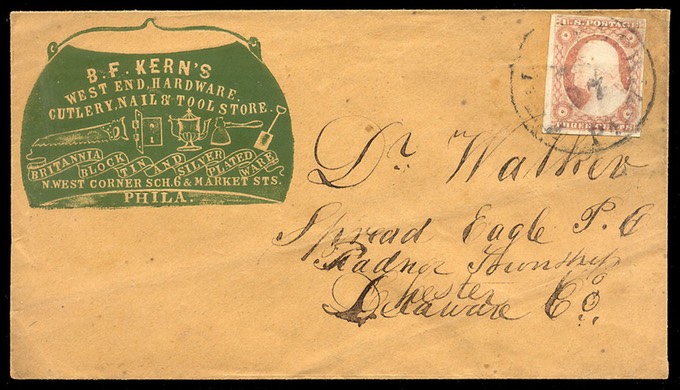 B. F. KERN'S
WEST END, HARDWARE,
CUTLERY, NAIL & TOOL STORE.
BRITANNIA BLOCK TIN AND SILVER PLATED WARE
N. WEST CORNER SCH. 6 & MARKET STS.
PHILA.
U.S. POSTAGE
THREE CENTS
Dr. Walker
Spread Eagle P. O
Radnor Township
Chester
Delaware Co.